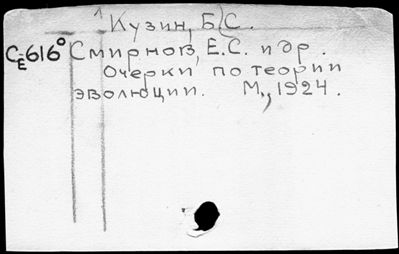 Кузин, Б.С.
СЕ616° Смирнов, Е.С. и др.
Очерки по теории
эволюции. М., 1924.